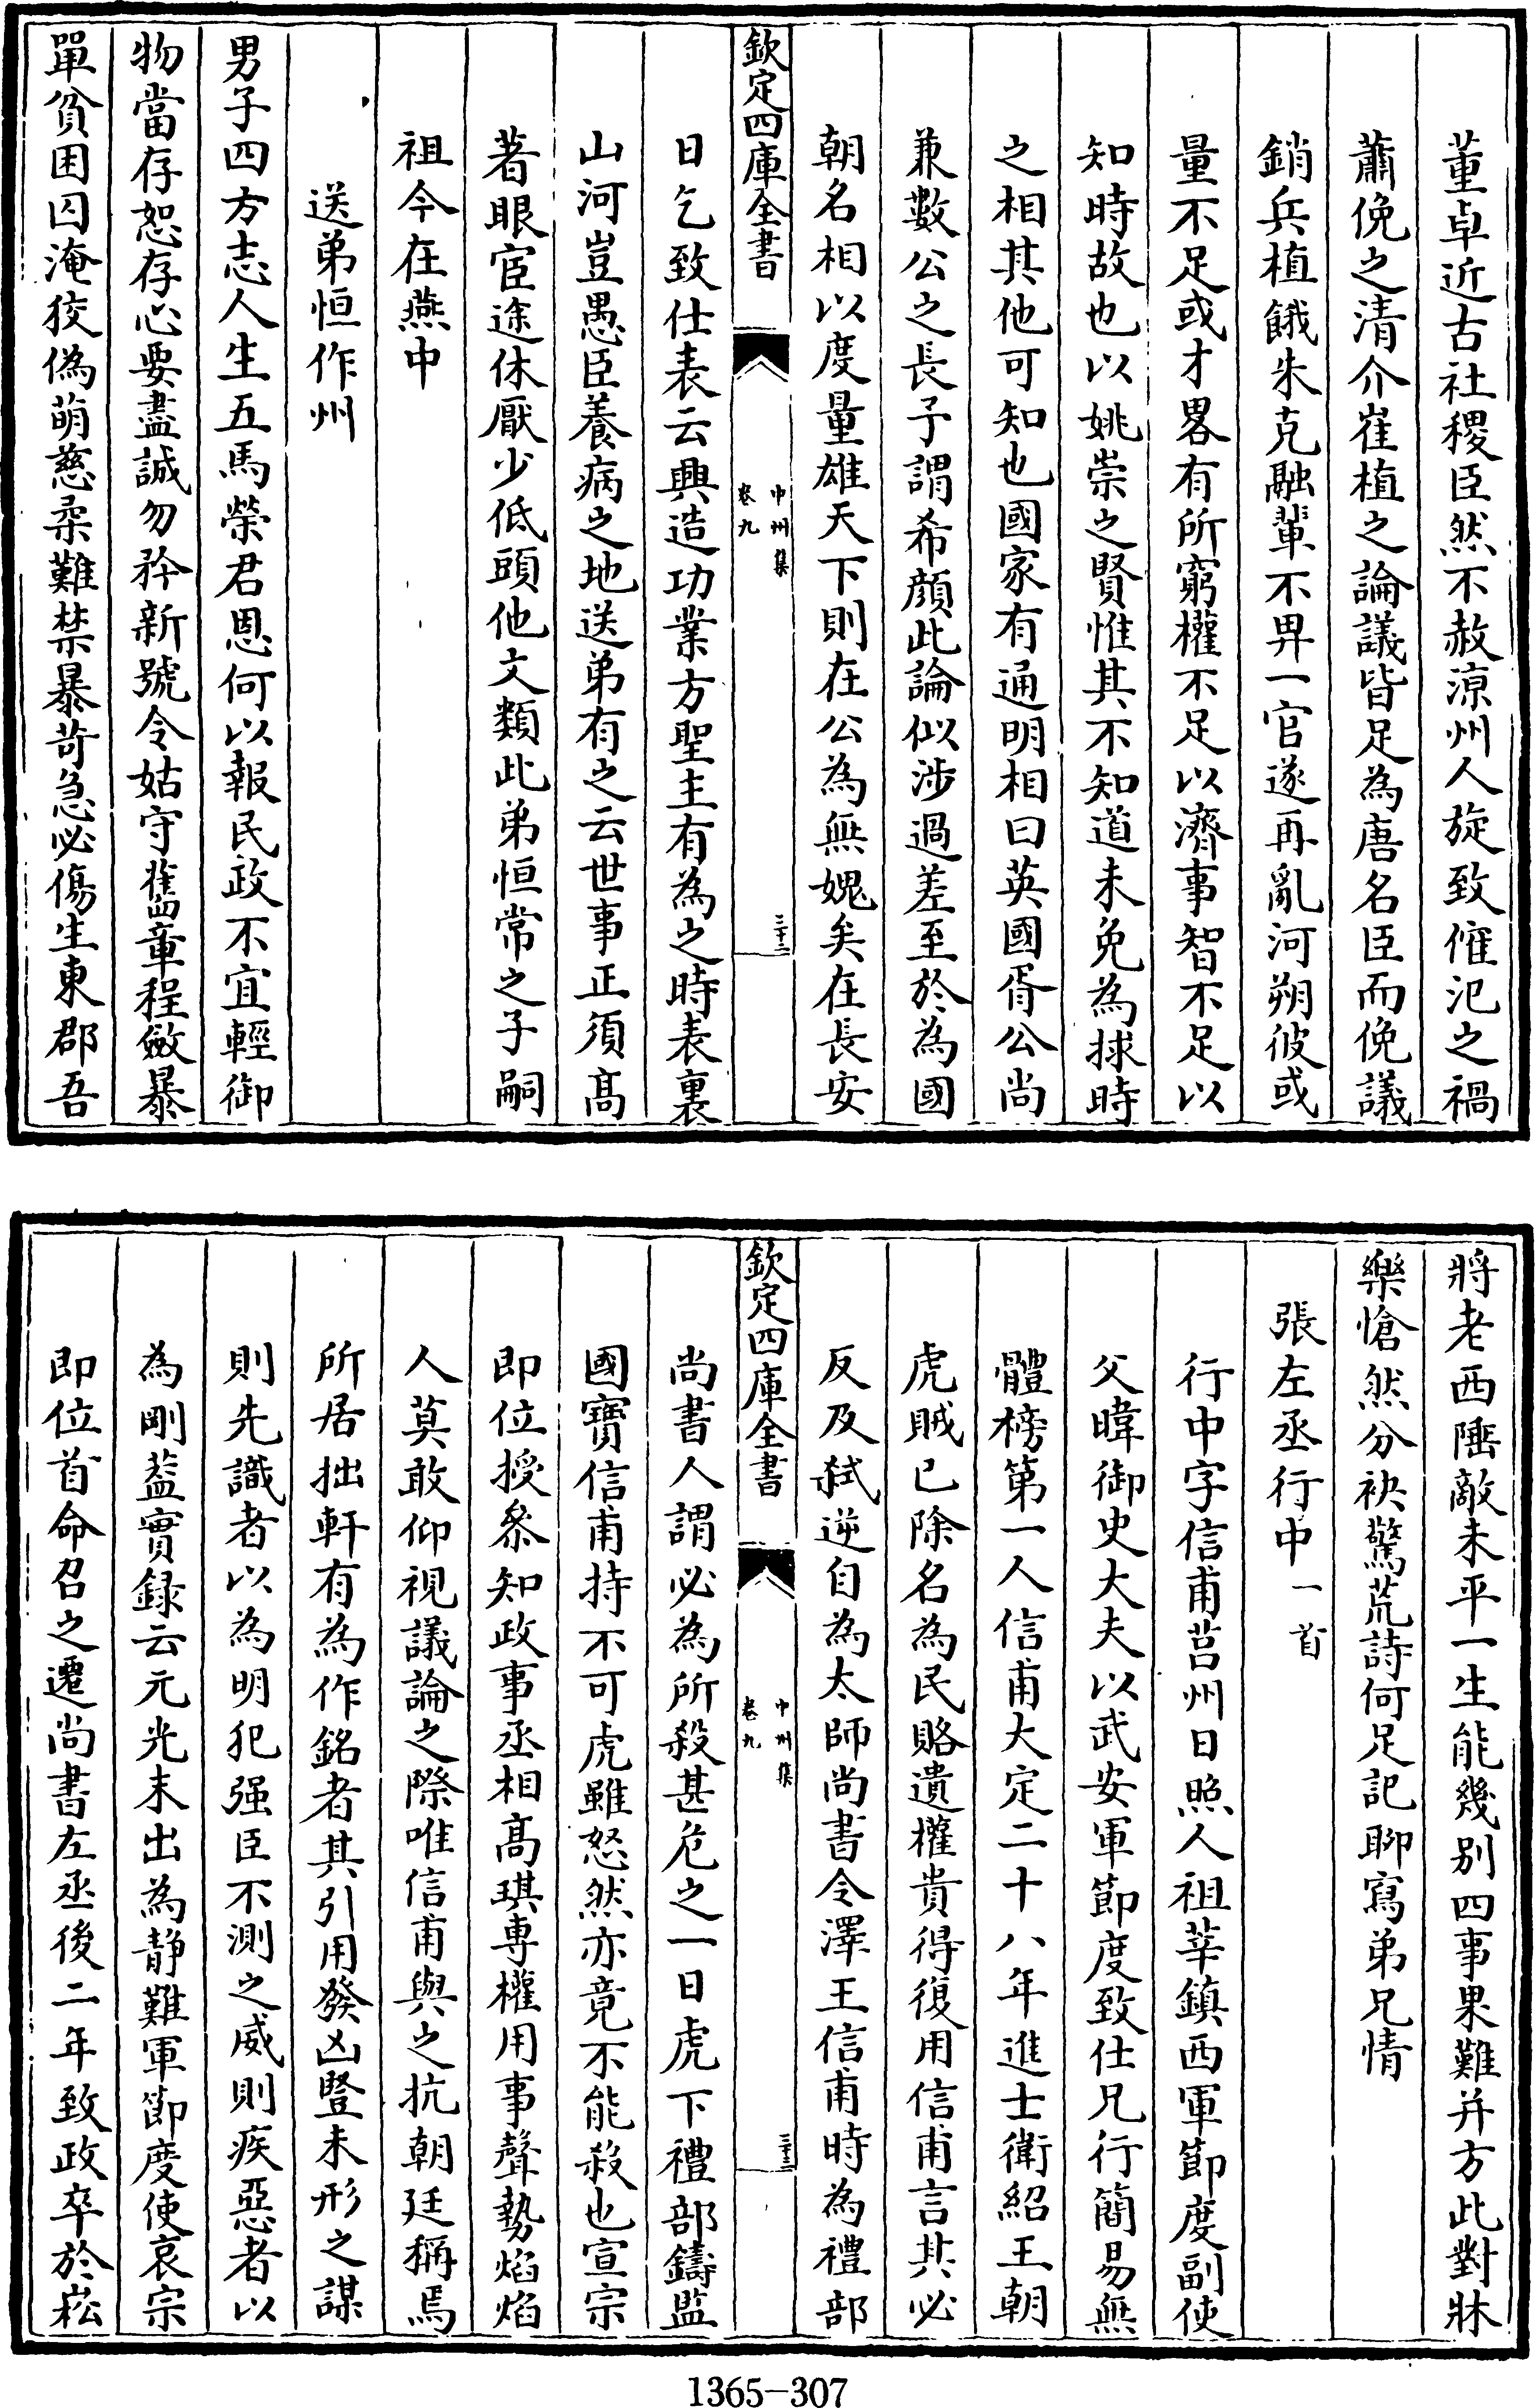 董卓近古社稷臣然不赦涼州人旋致傕汜之禍
蕭俛之清介崔植之論議皆足為唐名臣而俛議
銷兵植餓朱克融輩不畀一官遂再亂河朔彼或
量不足或才畧有所窮權不足以濟事智不足以
知時故也以姚崇之賢惟其不知道未免為捄時
之相其他可知也國家有通明相曰英國胥公尚
兼數公之長予謂希顔此論似涉過差至於為國
朝名相以度量雄天下則在公為無媿矣在長安
欽定四庫全書
中州集
卷九
三十二
日乞致仕表云興造功業方聖主有為之時表裏
山河豈愚臣養病之地送弟有之云世事正須髙
著眼宦途休厭少低頭他文類此弟恒常之子嗣
祖今在燕中
送弟恒作州
男子四方志人生五馬榮君恩何以報民政不宜輕御
物當存恕存心要盡誠勿矜新號令姑守舊章程斂暴
單貧困囚淹狡偽萌慈柔難禁暴苛急必傷生東郡吾
將老西陲敵未平一生能幾别四事果難并方此對牀
樂愴然分袂驚荒詩何足記聊寫弟兄情
張左丞行中一首
行中字信甫莒州日照人祖莘鎮西軍節度副使
父暐御史大夫以武安軍節度致仕兄行簡易無
體榜第一人信甫大定二十八年進士衛紹王朝
虎賊已除名為民賂遺權貴得復用信甫言其必
反及弑逆自為太師尚書令澤王信甫時為禮部
欽定四庫全書
中州集
卷九
三十三
尚書人謂必為所殺甚危之一日虎下禮部鑄監
國寳信甫持不可虎雖怒然亦竟不能殺也宣宗
即位授叅知政事丞相髙琪專權用事聲勢焰焰
人莫敢仰視議論之際唯信甫與之抗朝廷稱焉
所居拙軒有為作銘者其引用發凶豎未形之謀
則先識者以為明犯强臣不測之威則疾惡者以
為剛葢實録云元光末出為静難軍節度使哀宗
即位首命召之遷尚書左丞後二年致政卒於崧
1365-307